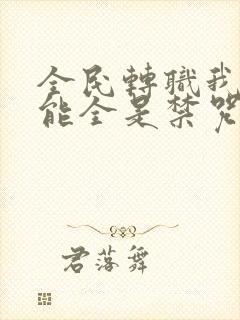 全民轉職我
能全是禁咒
君落舞